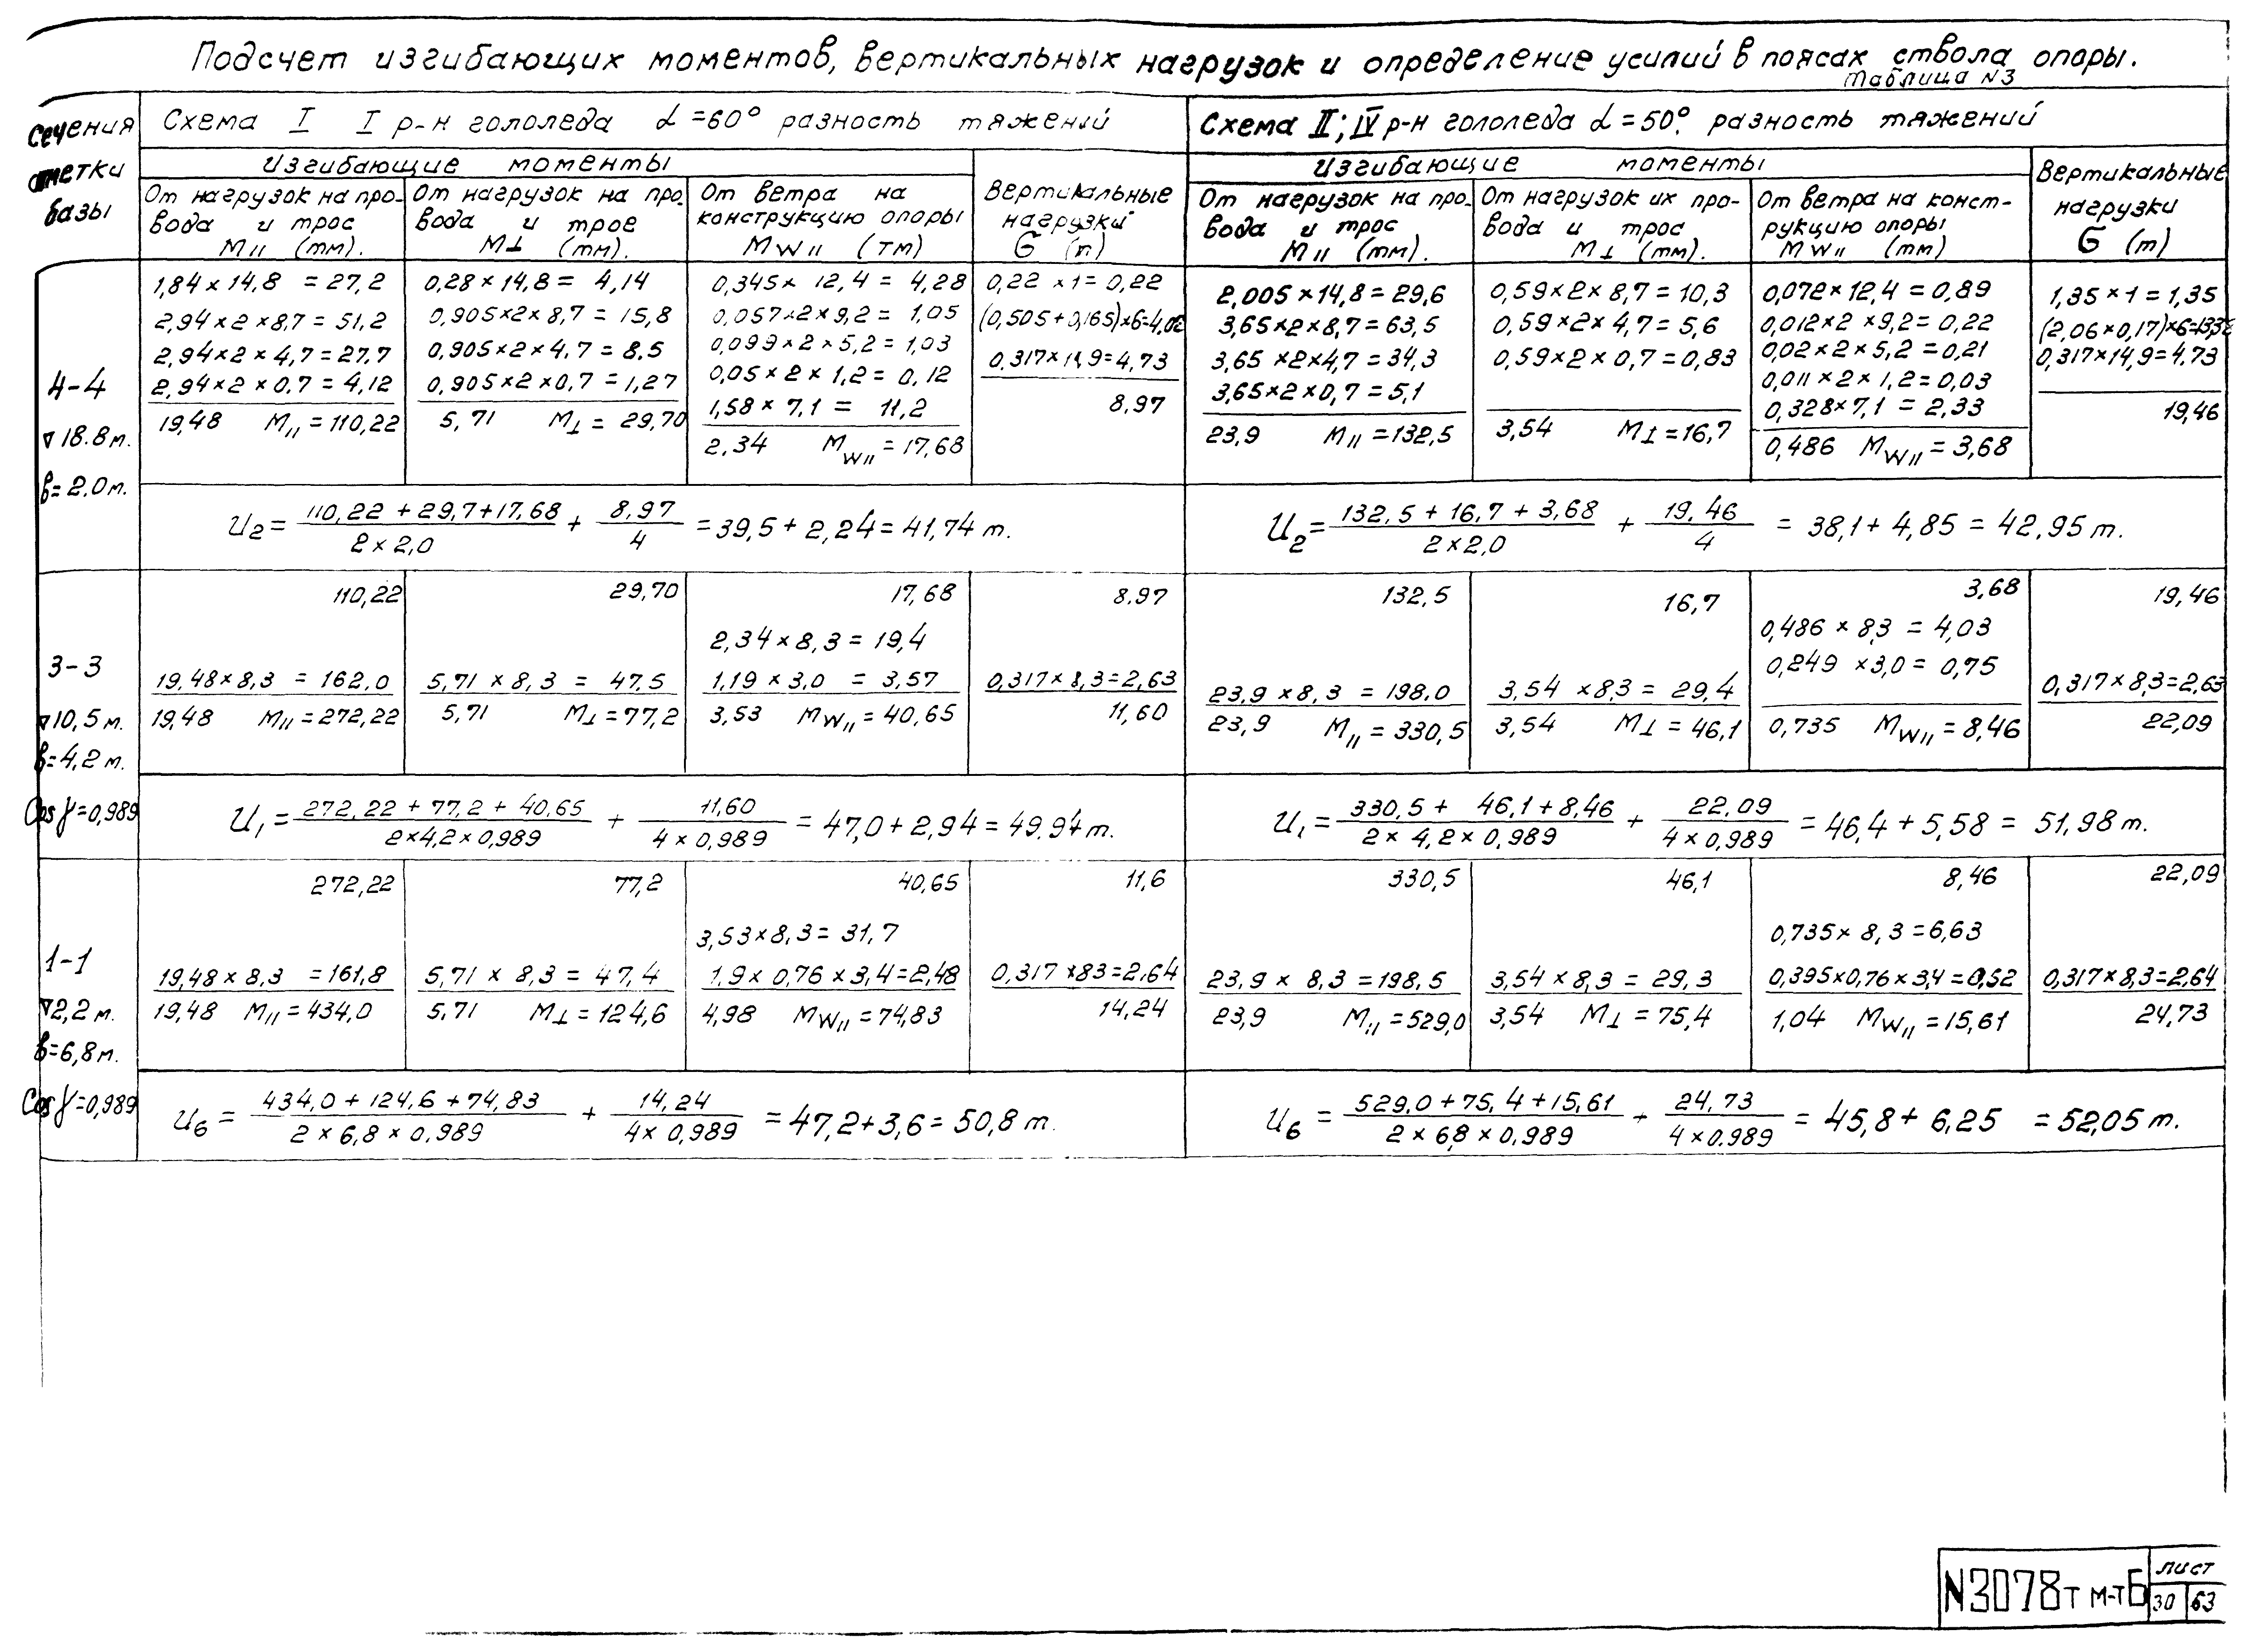 Подсчет изгибающих моментов, вертикальных нагрузок и определение усилий в поясах ствола опоры.
Таблица №3
Сечения
отметки
базы
Схема I I р-н гололеда α=60° разность тяжений
Изгибающие моменты
От нагрузок на про-
вода и трос
M∥ (тм).
От нагрузок на про-
вода и трос
M⊥ (тм).
От ветра на
конструкцию опоры
MW∥ (тм)
Вертикальные
нагрузки
G (т)
Схема II; IV р-н гололеда α=50°. разность тяжений
Изгибающие моменты
От нагрузок на про-
вода и трос
M∥ (тм).
От нагрузок их про-
вода и трос
M⊥ (тм).
От ветра на конст-
рукцию опоры
MW∥ (тм)
Вертикальные
нагрузки
G (т)
4-4
∇ 18.8м.
b=2.0м.
1,84×14,8 = 27,2
2,94×2×8,7 = 51,2
2,94×2×4,7=27,7
2,94×2×0,7=4,12
19,48 M∥=110,22
0,28×14,8= 4,14
0,905×2×8,7 = 15,8
0,905×2×4,7= 8.5
0,905×2×0,7=1,27
5,71 M⊥= 29,70
0,345× 12,4 = 4,28
0,057×2×9,2= 1,05
0,099×2×5,2=1,03
0,05×2×1,2= 0,12
1,58×7,1 = 11,2
2,34 MW∥=17,68
0,22 ×1=0,22
(0,505+0,165)×6=4,02
0,317×14,9=4,73
8,97
2,005×14,8=29,6
3,65×2×8,7=63,5
3,65×2×4,7=34,3
3,65×2×0,7=5,1
23,9 M∥=132,5
0,59×2×8,7=10,3
0,59×2×4,7=5,6
0,59×2×0,7=0,83
3,54 M⊥=16,7
0,072×12,4=0,89
0,012×2×9,2=0,22
0,02×2×5,2=0,21
0,011×2×1,2=0,03
0,328×7,1 = 2,33
0,486 MW∥=3,68
1,35×1=1,35
(2,06×0,17)×6=13,38
0,317×14,9=4,73
19,46
U2 = (110,22+29,7+17,68)/(2×2,0) + 8,97/4 =39,5+2,24=41,74 т.
U2 = (132,5+16,7+3,68)/(2×2,0) + 19,46/4 = 38,1+4,85=42,95 т.
3-3
∇10,5м.
b=4,2 м.
Cosγ=0,989
110,22
19,48×8,3 = 162,0
19,48 M∥=272,22
29,70
5,71×8,3 = 47,5
5,71 M⊥=77,2
17,68
2,34×8,3=19,4
1,19×3,0 = 3,57
3,53 MW∥=40,65
8,97
0,317×8,3=2,63
11,60
132,5
23,9×8,3 = 198,0
23,9 M∥=330,5
16,7
3,54 ×8,3= 29,4
3,54 M⊥=46,1
3,68
0,486×8,3 = 4,03
0,249 ×3,0= 0,75
0,735 MW∥=8,46
19,46
0,317×8,3=2,63
22,09
U1 = (272,22+77,2+40,65)/(2×4,2×0,989) + 11,60/(4×0,989) = 47,0+2,94=49,94 т.
U1 = (330,5+ 46,1+8,46)/(2×4,2×0,989) + 22,09/(4×0,989) =46,4+5,58= 51,98 т.
1-1
∇2,2 м.
b=6,8м.
Cosγ=0,989
272,22
19,48×8,3 =161,8
19,48 M∥=434,0
77,2
5,71×8,3= 47,4
5,71 M⊥=124,6
40,65
3,53×8,3= 31,7
1,9×0,76×3,4=2,48
4,98 MW∥=74,83
11,6
0,317×8,3=2,64
14,24
330,5
23,9×8,3=198,5
23,9 M∥=529,0
46,1
3,54×8,3= 29,3
3,54 M⊥=75,4
8,46
0,735×8,3=6,63
0,395×0,76×3,4=0,52
1,04 MW∥=15,61
22,09
0,317×8,3=2,64
24,73
U6 = (434,0+124,6+74,83)/(2×6,8×0,989) + 14,24/(4×0,989) =47,2+3,6=50,8 т.
U6 = (529,0+75,4+15,61)/(2×6,8×0,989) + 24,73/(4×0.989) = 45,8+6,25 =52,05 т.
N3078т м-тБ
лист
30 63